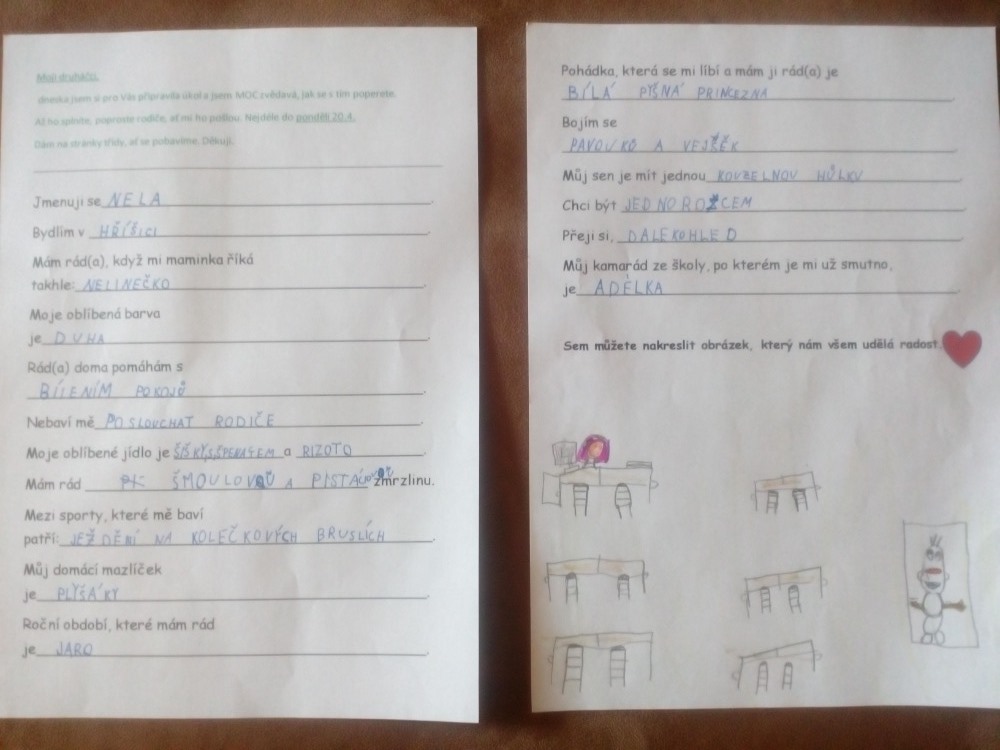 Moji druháčci,
dneska jsem si pro Vás připravila úkol a jsem MOC zvědavá, jak se s tím poperete.
Až ho splníte, poproste rodiče, ať mi ho pošlou. Nejdéle do pondělí 20.4.
Dám na stránky třídy, ať se pobavíme. Děkuji.
Jmenuji se NELA.
Bydlím v HŘÍŠICI.
Mám rád(a), když mi maminka říká
takhle: NELINEČKO.
Moje oblíbená barva
je DUHA.
Rád(a) doma pomáhám s
BÍLENÍM POKOJŮ.
Nebaví mě POSLOUCHAT RODIČE.
Moje oblíbené jídlo je a RIZOTO.
Mám rád ŠMOULOVOU A zmrzlinu.
Mezi sporty, které mě baví
patří: JEŽDĚNÍ NA KOLEČKOVÝCH BRUSLÍCH.
Můj domácí mazlíček
je PLYŠÁKY.
Roční období, které mám rád
je JARO.
Pohádka, která se mi líbí a mám ji rád(a) je
BÍLÁ PYŠNÁ PRINCEZNA.
Bojím se
PAVOUKŮ A.
Můj sen je mít jednou KOUZELNOU HŮLKU.
Chci být JEDNOROŽCEM
Přeji si, DALEKOHLED.
Můj kamarád ze školy, po kterém je mi už smutno,
je ADÉLKA.
Sem můžete nakreslit obrázek, který nám všem udělá radost.